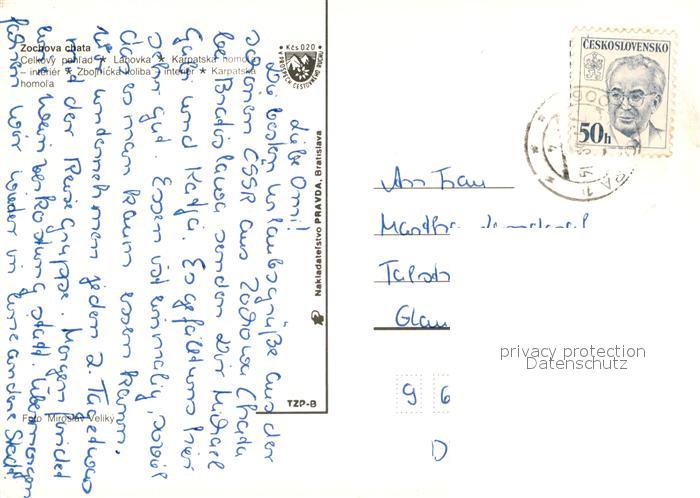 Zochova chata
Celkový pohľad ★ Láhovka ★ Karpatská homoľa
– interiér ★ Zbojnícka koliba – interiér ★ Karpatská
homoľa
Kčs 0,20
V PROSPECH CESTOVNÉHO RUCHU
ČESKOSLOVENSKO
50h
Liebe Omi!
Die besten Urlaubsgrüße aus der
schönen CSSR aus Zochova Chata
bei Bratislava senden Dir Michael
Gabi und Katja. Es gefällt uns hier
sehr gut. Essen ist einmalig, soviel
das man kaum essen kann.
Wir unternehmen jeden 2. Tag etwas
mit der Reisegruppe. Morgen findet
eine Weinverkostung statt. Übermorgen
fahren wir wieder in eine andere Stadt.
Nakladateľstvo PRAVDA, Bratislava
TZP-B
Foto Miroslav Veliký
An Frau
Martha
Talst
Glau
9 6
D
privacy protection
Datenschutz